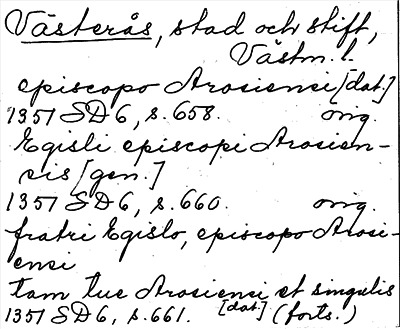 Västerås, stad och stift,
Västm. l.
episcopo Arosiensi [dat.]
1351 SD 6, s. 658. orig.
Egisli episcopi Arosien-
sis [gen.]
1351 SD 6, s. 660. orig.
fratri Egislo, episcopo Arosi-
ensi
tam tue Arosiensi et singulis
1351 SD 6, s. 661. [dat.] (forts.)